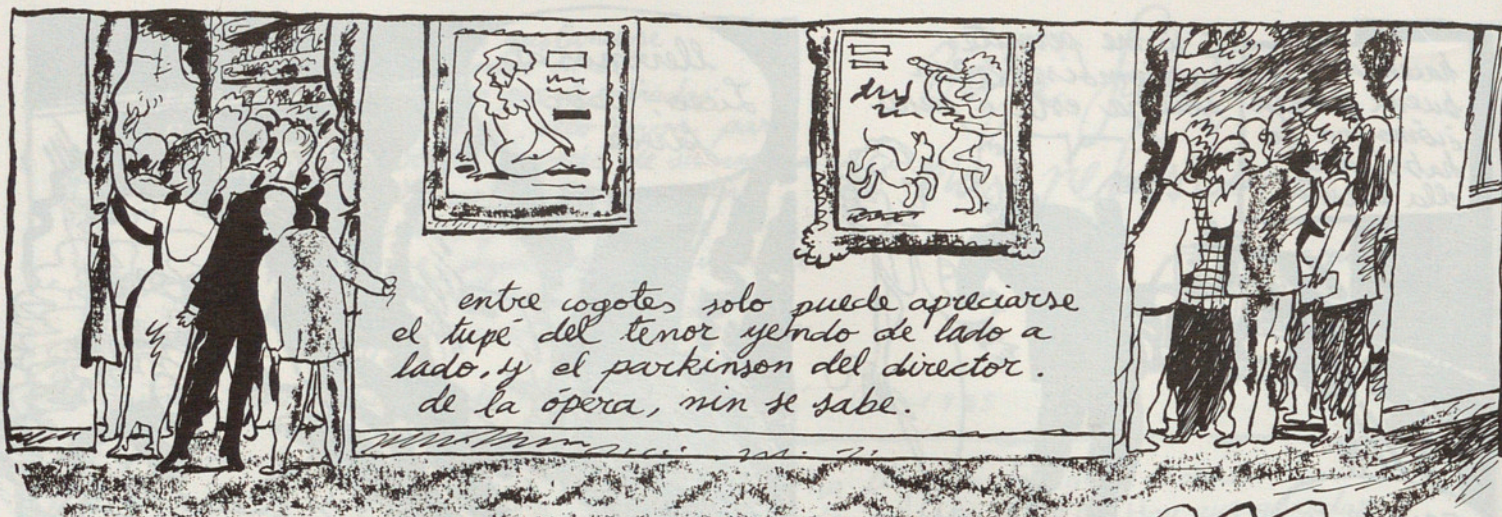 entre cogotes solo puede apreciarse
el tupé del tenor yendo de lado a
lado, y el parkinson del director.
de la ópera, nin se sabe.